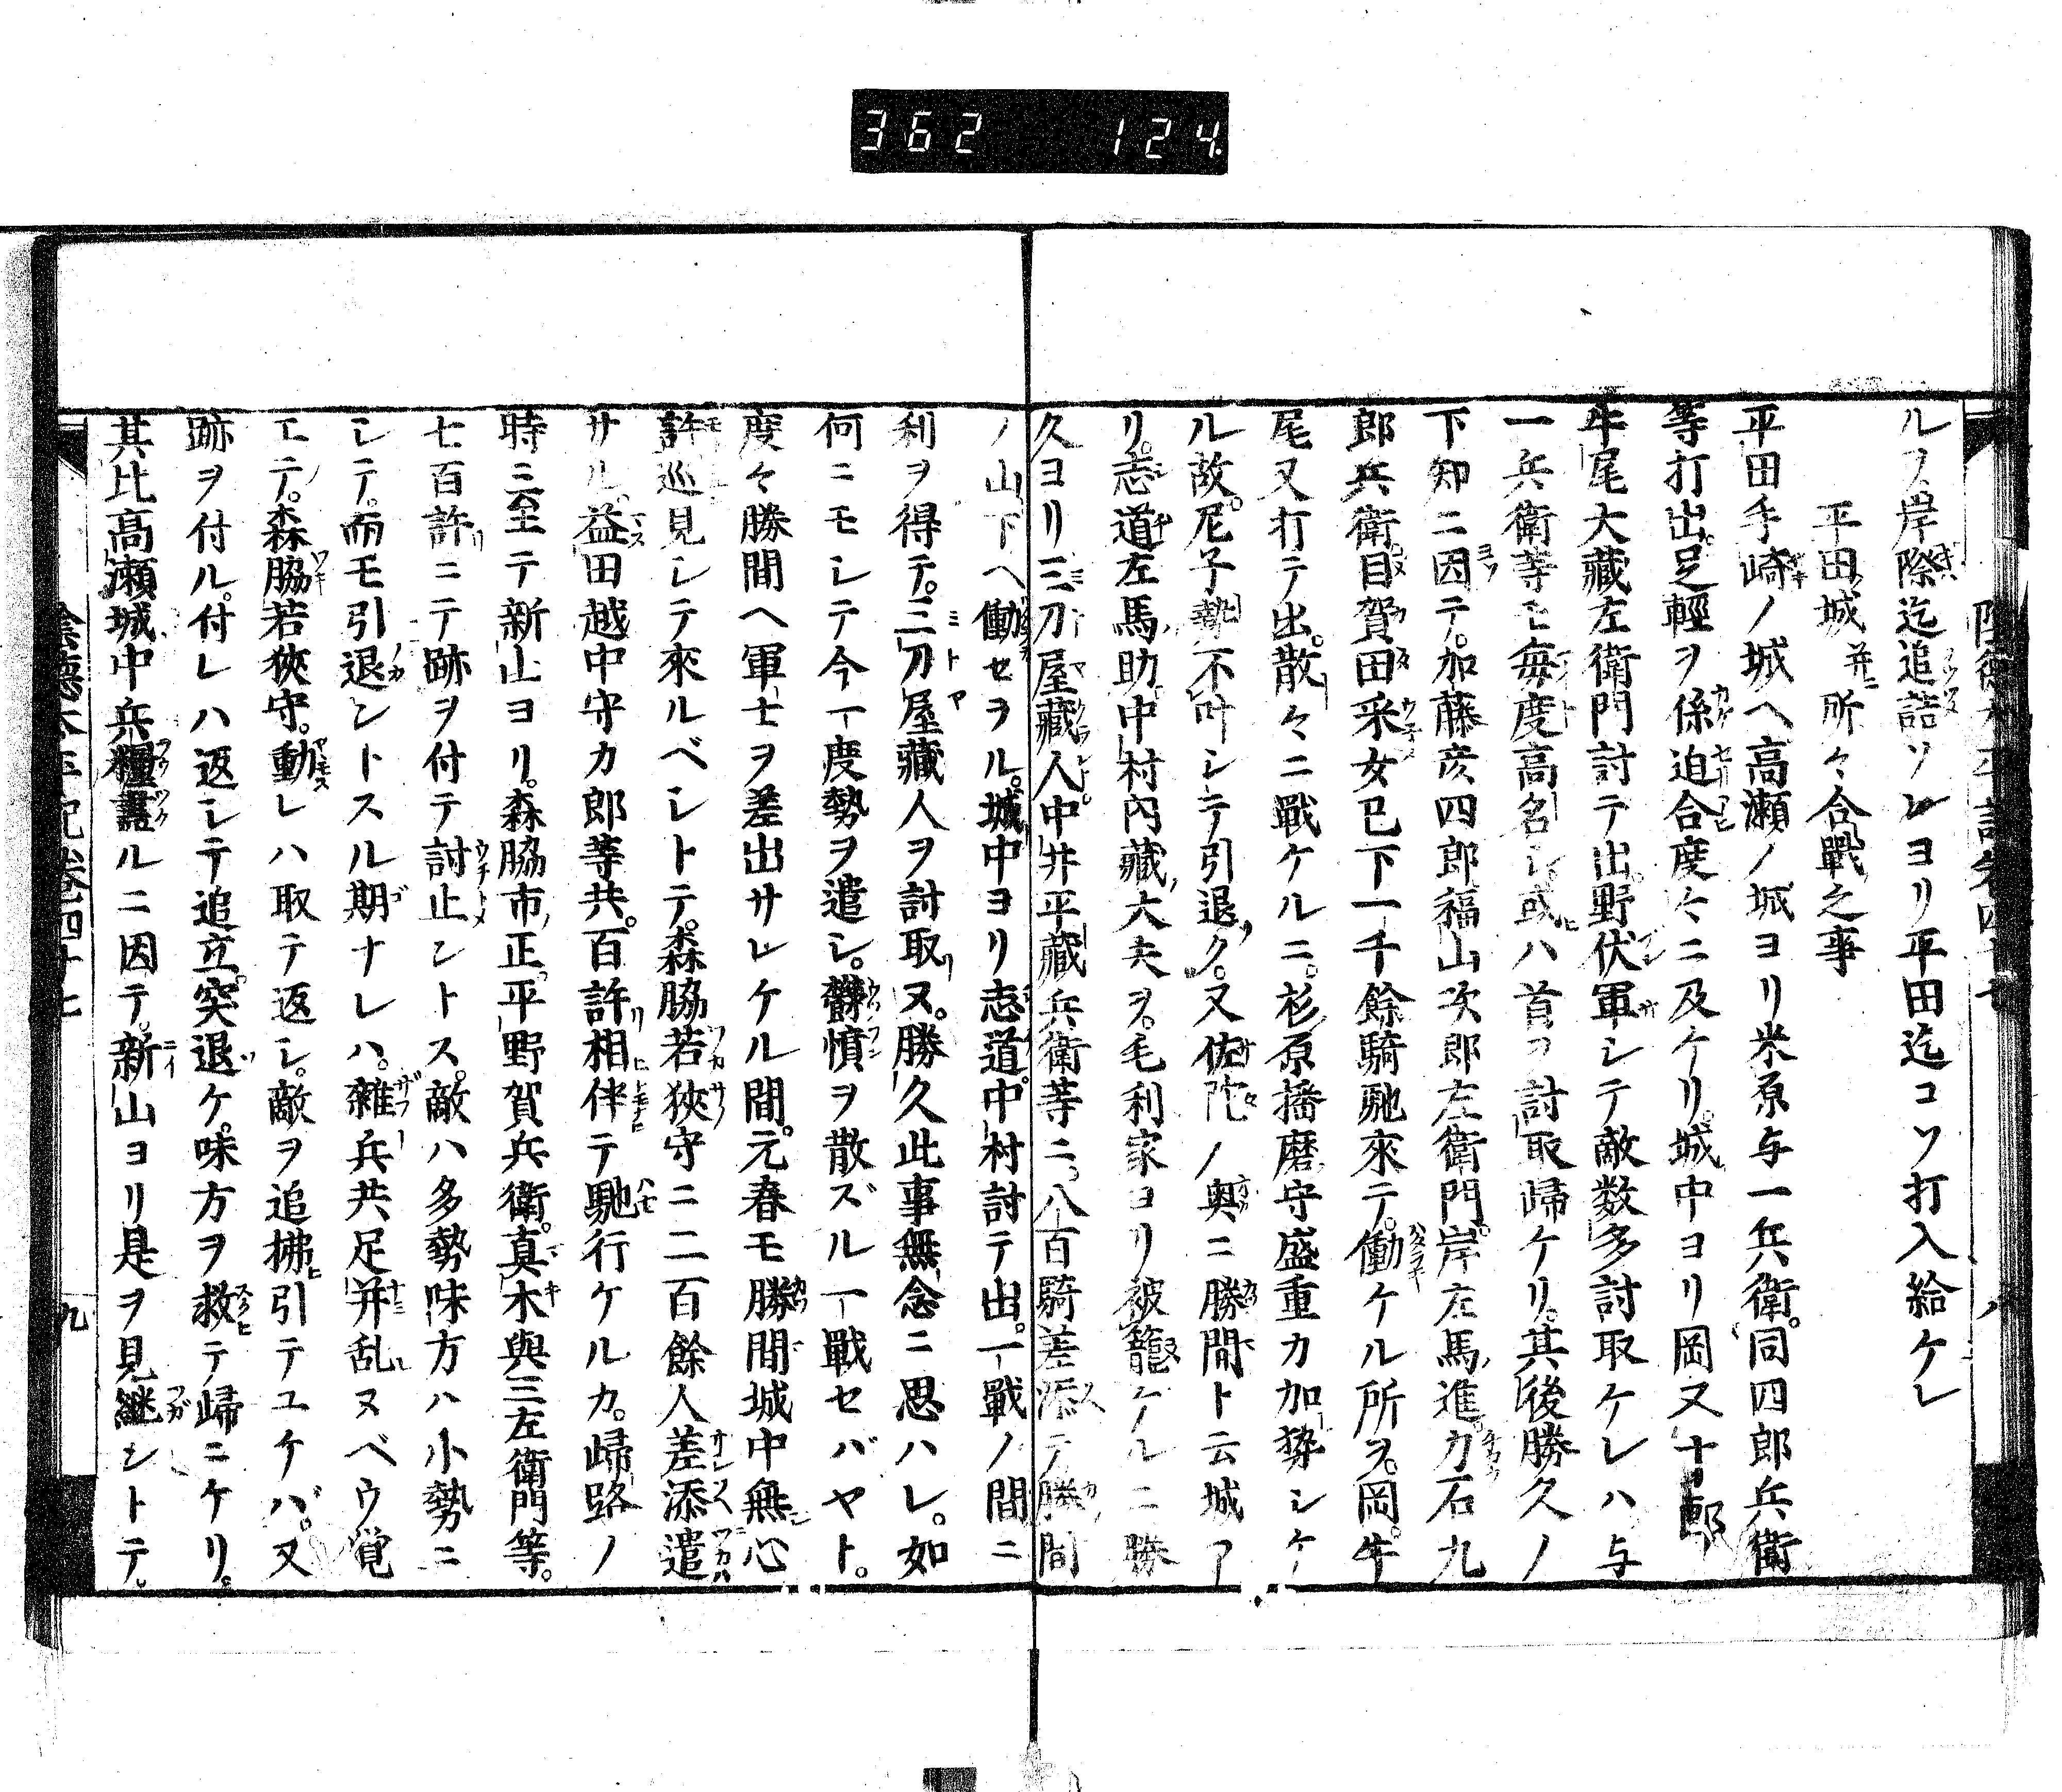 362 124
ルヲ岸際迄追詰ソレヨリ平田迄コソ打入給ケレ
平田城并ニ所々合戰之事
平田手崎ノ城ヘ高瀬ノ城ヨリ米原与一兵衛。同四郎兵衛
等打出足輕ヲ係迫合度々ニ及ケリ。城中ヨリ岡又十郎
牛尾大藏左衛門討テ出。野伏軍シテ敵数多討取ケレハ与
一兵衛等モ毎度高名シ或ハ首ヲ討取歸ケリ。其後勝久ノ
下知ニ因テ。加藤彦四郎福山次郎左衛門岸左馬進力石九
郎兵衛目賀田采女已下一千餘騎馳來テ。働ケル所ヲ。岡牛
尾又打テ出。散々ニ戰ケルニ。杉原播磨守盛重カ加勢シケ
ル故。尼子勢不叶シテ引退ク。又佐陀ノ奥ニ勝間ト云城ア
リ。志道左馬助中村内藏大夫ヲ。毛利家ヨリ被籠ケルニ勝
久ヨリ三刀屋藏人中井平藏兵衛等ニ。八百騎差添テ勝間
ノ山下ヘ働セヲル。城中ヨリ志道中村討テ出。一戰ノ間ニ
利ヲ得テ。三刀屋藏人ヲ討取ヌ。勝久此事無念ニ思ハレ。如
何ニモシテ今一度勢ヲ遣シ。欝憤ヲ散ズル一戰セバヤト。
度々勝間ヘ軍士ヲ差出サレケル間。元春モ勝間城中無心
許巡見シテ來ルベシトテ。森脇若狹守ニ二百餘人差添遣
サル。益田越中守カ郎等共。百許相伴テ馳行ケルカ。歸路ノ
時ニ至テ新山ヨリ。森脇市正。平野賀兵衛。真木與三左衛門等。
七百許ニテ跡ヲ付テ討止ントス。敵ハ多勢味方ハ小勢ニ
シテ。而モ引退ントスル期ナレハ。雜兵共足並乱ヌベウ覚
エテ。森脇若狹守。動レハ取テ返シ。敵ヲ追拂引テユケバ。又
跡ヲ付ル。付レハ返シテ追立。突退ケ。味方ヲ救テ歸ニケリ。
其比高瀬城中兵糧盡ルニ因テ。新山ヨリ是ヲ見継ントテ。
九